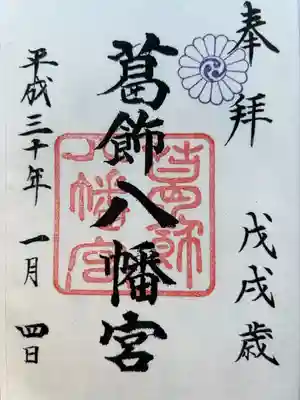 奉拝
戊戌歳
葛飾八幡宮
葛飾八幡宮
平成三十年 一月 四日